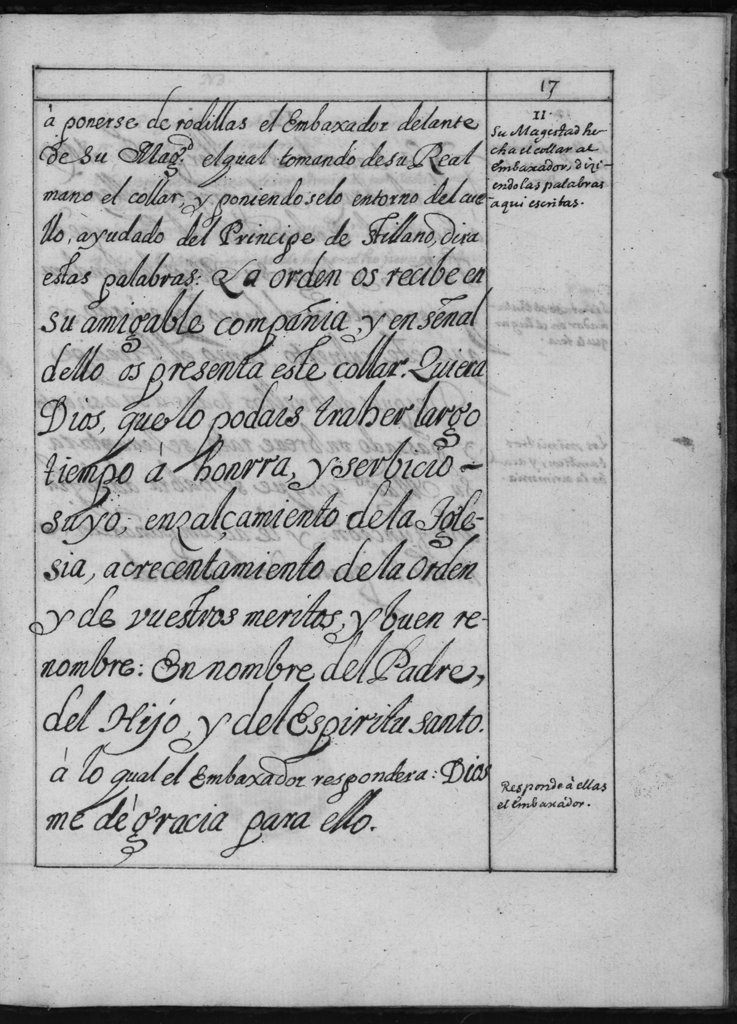 17
à ponerse de rodillas el Embaxador delante
de Su Magd. el qual tomando de su Real
mano el collar, y poniendoselo entorno del cue-
llo, ayudado del Principe de Astillano, dira
estas palabras: La orden os recibe en
su amigable compañia, y en señal
dello os presenta este collar. Quiera
Dios, que lo podais traher largo
tiempo á honrra, y serbicio -
suyo, enzalçamiento de la Igle-
sia, acrecentamiento de la orden
y de vuestros meritos, y buen re-
nombre: En nombre del Padre,
del Hijo, y del Espiritu santo.
á lo qual el Embaxador respondera: Dios
me dé gracia para ello.
II.
Su Magestad he-
cha el collar al
Embaxador, dizi-
endo las palabras
aqui escritas.
Responde à ellas
el Embaxador.